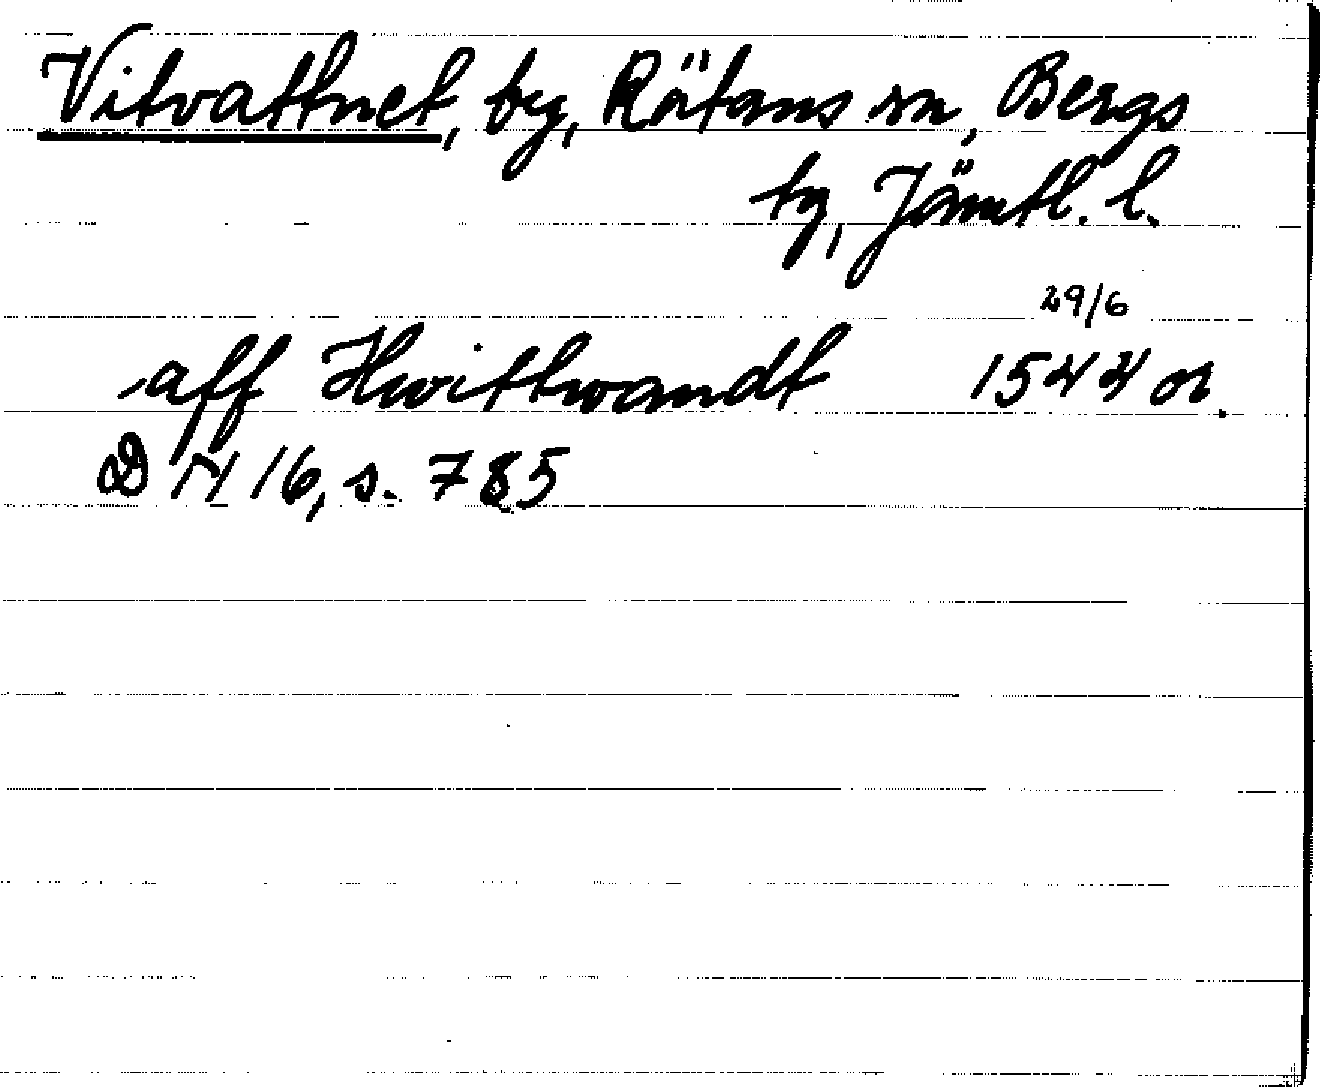 Vitvattnet, by, Rätans sn, Bergs
tg, Jämtl. l.
29/6
aff Hwithwandt 1544 or.
DN 16, s. 785